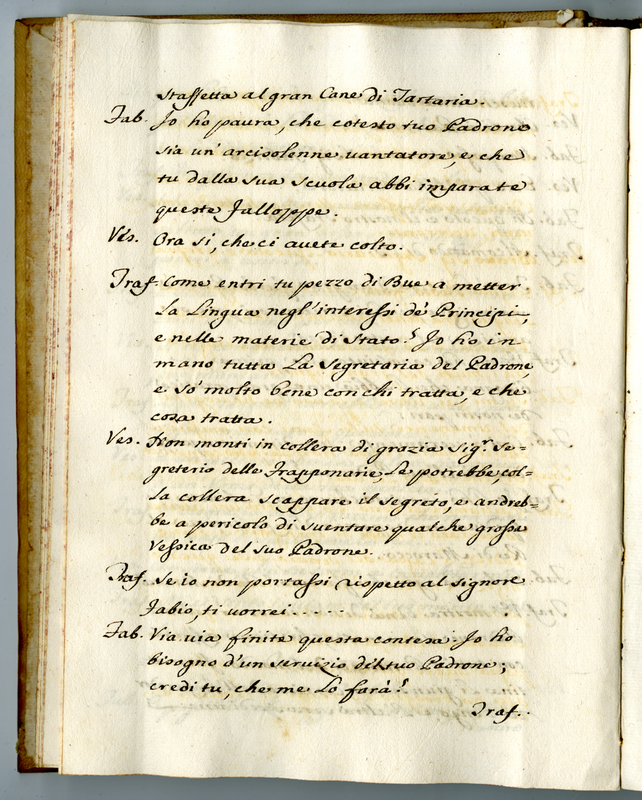 staffetta al gran Cane di Tartaria.
Fab. Io ho paura, che cotesto tuo Padrone
sia un' arcisolenne vantatore, e che
tu dalla sua scuola abbi imparate
queste Falloppe.
Ves. Ora si, che ci avete colto.
Traf. Come entri tu pezzo di Bue a metter
la Lingua negl' interessi de' Principi,
e nelle materie di Stato? Io ho in
mano tutta la segretaria del Padrone,
e sò molto bene con chi tratta, e che
cosa tratta.
Ves. Non monti in collera di grazia Sig.r Se=
greterio delle Frapponarie, se potrebbe, col=
la collera scappare il segreto, e andreb=
be a pericolo di sventare qualche grossa
Vessica del suo Padrone.
Traf. Se io non portassi rispetto al signore
Fabio, ti vorrei.....
Fab. Via via finite questa contesa. Io ho
bisogno d'un servizio del tuo Padrone;
credi tu, che me lo farà?
Traf.